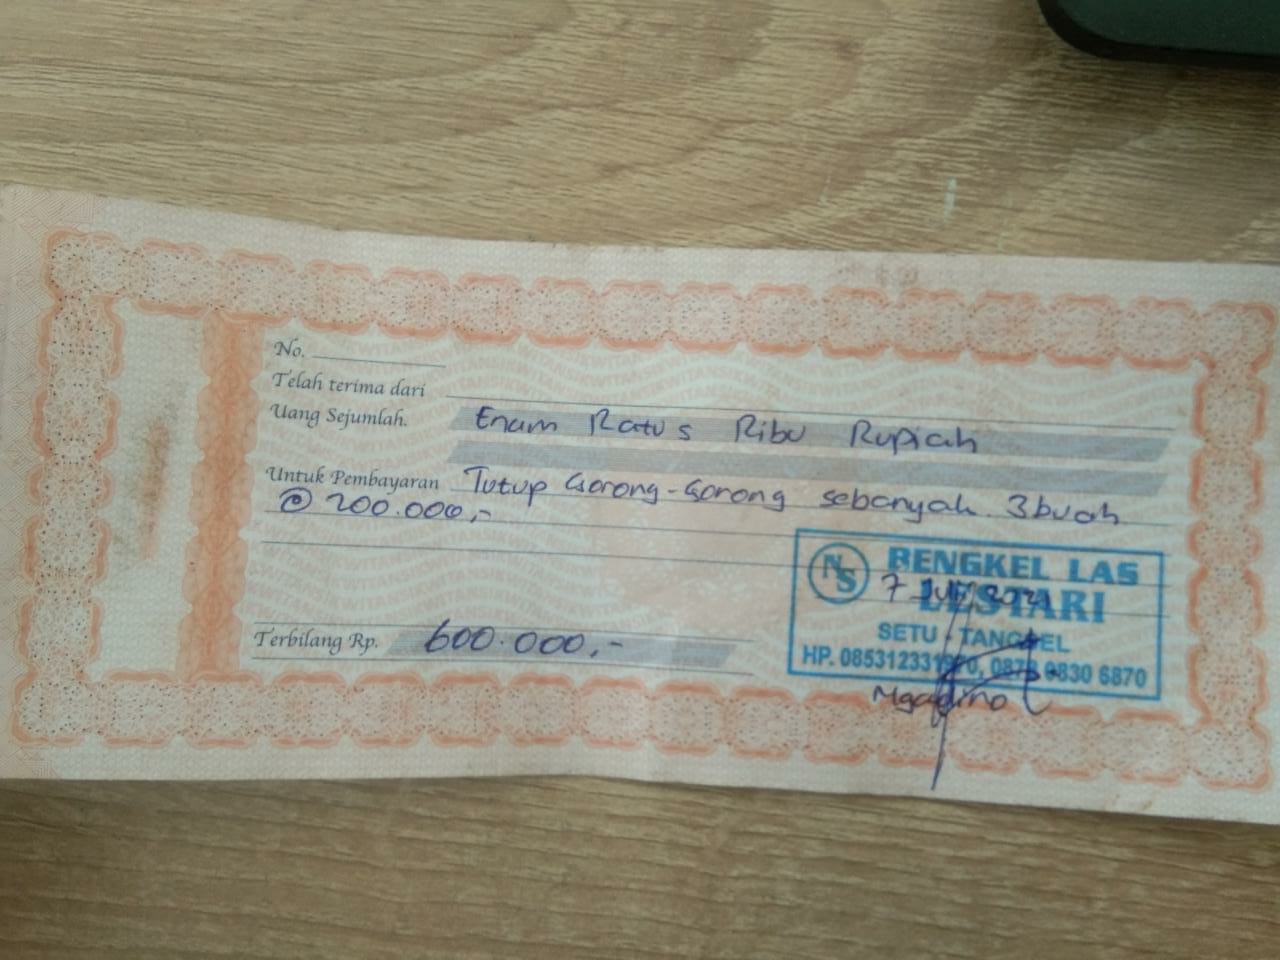 No.
Telah terima dari
Uang Sejumlah. Enam Ratus Ribu Rupiah
Untuk Pembayaran Tutup Gorong-Gorong sebanyak 3 buah
@ 200.000,-
Terbilang Rp. 600.000,-
NS BENGKEL LAS
7 Juli
LESTARI
SETU - TANGSEL
0830 6870
Ngadino